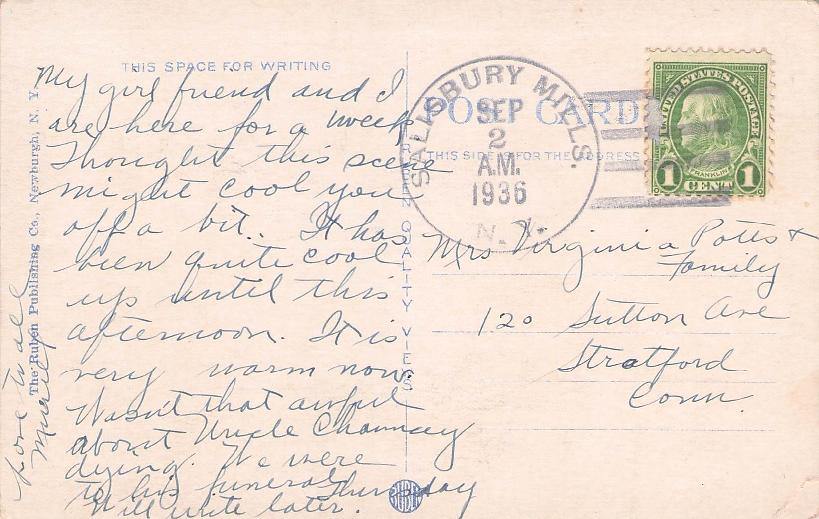 THIS SPACE FOR WRITING
My girl friend and I
are here for a week
Thought this scene
might cool you
off a bit. It has
been quite cool
up until this
afternoon. It is
very warm now
Wasn't that awful
about Uncle Chauncey
dying. We were
to his funeral Thursday
Will write later.
Love to all
Muriel
The Ruben Publishing Co., Newburgh, N. Y.
RUBEN QUALITY VIEWS
POST CARD
THIS SIDE IS FOR THE ADDRESS
SALISBURY MILLS.
SEP
2
A.M.
1936
N. Y.
UNITED STATES POSTAGE
FRANKLIN
1 CENT 1
Mrs Virginia Potts +
Family
120 Sutton Ave
Stratford
Conn.